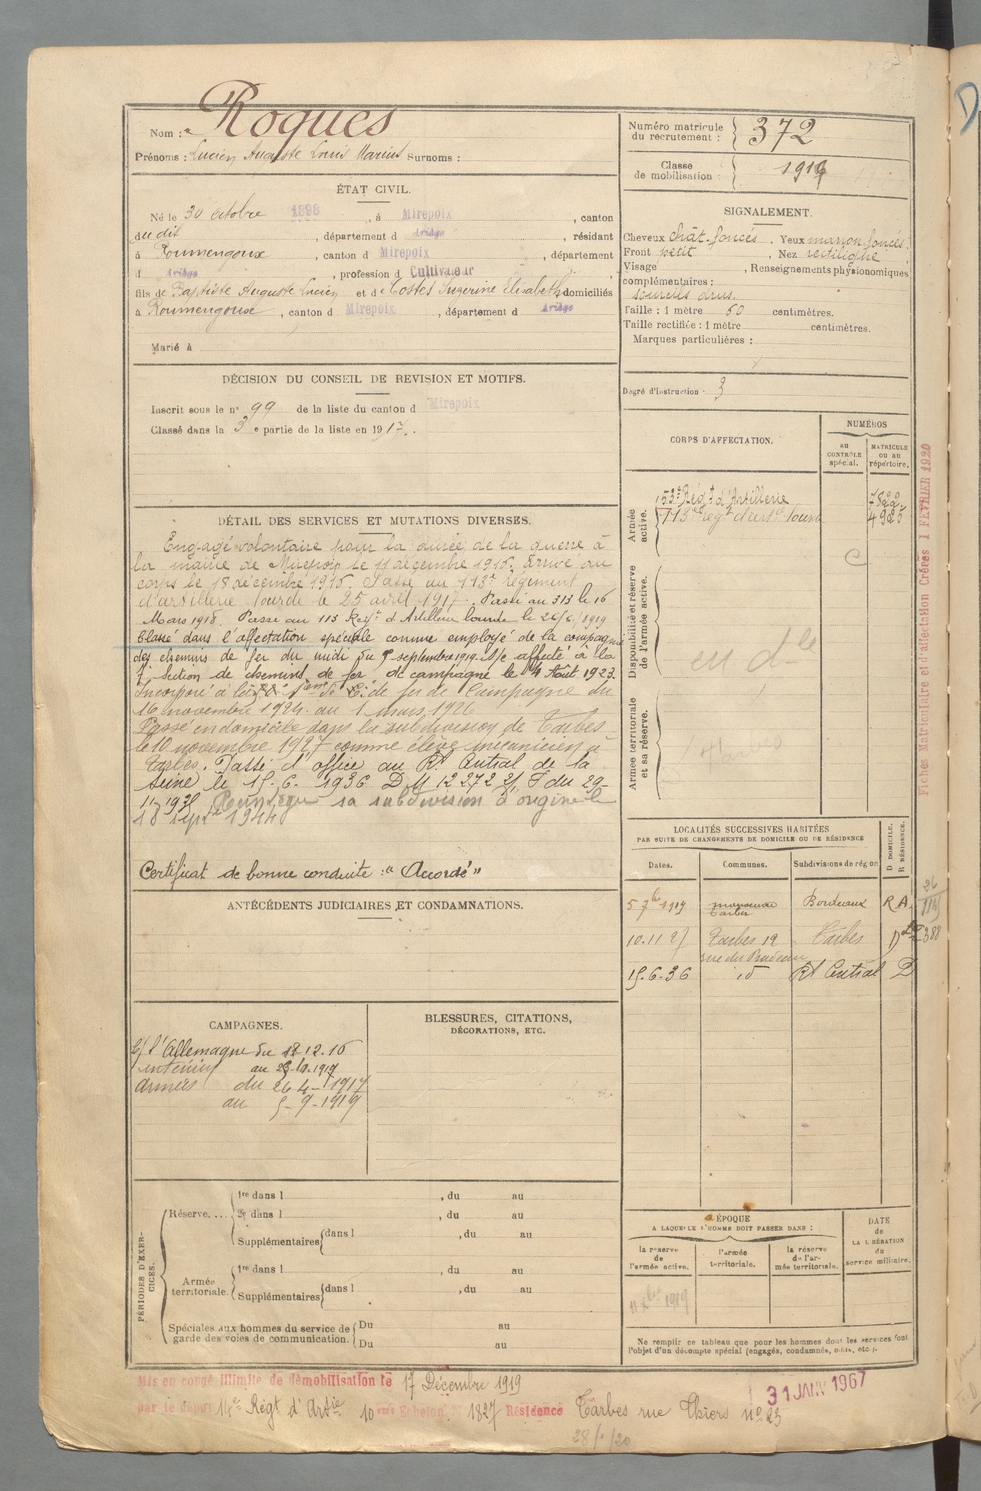 Nom : Roques
Prénoms : Lucien Auguste Louis Marius Surnoms :
Numéro matricule du recrutement : 372
Classe de mobilisation : 1919
ÉTAT CIVIL.
Né le 30 octobre 1898, à Mirepoix, canton
du dit, département d Ariège, résidant
à Roumengoux, canton d Mirepoix, département
d Ariège, profession d Cultivateur
fils de Baptiste Auguste Lucien et d Costes Eugerine Elisabeth domiciliés
à Roumengoux, canton d Mirepoix, département d Ariège
Marié à
SIGNALEMENT.
Cheveux chât. foncés, Yeux marron foncés
Front petit, Nez rectiligne
Visage , Renseignements physionomiques
complémentaires :
sourcils drus.
Taille : 1 mètre 60 centimètres.
Taille rectifiée : 1 mètre centimètres.
Marques particulières :
Degré d'instruction : 3
DÉCISION DU CONSEIL DE REVISION ET MOTIFS.
Inscrit sous le n° 99 de la liste du canton d Mirepoix
Classé dans la 3e partie de la liste en 1917.
CORPS D'AFFECTATION.
NUMÉROS
AU CONTRÔLE spécial.
MATRICULE OU AU répertoire.
Armée active.
53e Régt d'Artillerie
113e regt d'artie lourde 4925
Disponibilité et réserve de l'armée active.
en dle
Armée territoriale et sa réserve.
DÉTAIL DES SERVICES ET MUTATIONS DIVERSES.
Engagé volontaire pour la durée de la guerre à
la mairie de Mirepoix le 11 décembre 1916. Arrivé au
corps le 18 décembre 1916. Passé au 113e régiment
d'artillerie lourde le 25 avril 1917. Passé au 313 le 16
Mars 1918. Passé au 113 Regt d'Artillerie lourde le 26/6/1919
Classé dans l'affectation spéciale comme employé de la compagnie
des chemins de fer du midi du 5 septembre 1919. Affecté à la
7e Section de chemins de fer de campagne le 4 Août 1923.
Incorporé à la de fer de Campagne du
16 novembre 1924 au 1 mars 1926
Passé en domicile dans la subdivision de Tarbes
le 10 novembre 1927 comme élève mécanicien à
Tarbes. Passé d'office au Rt Central de la
Seine le 15.6.1936 D M 12272 du 29-
11-1935 sa subdivision d'origine le
18 sept 1944
Certificat de bonne conduite : "Accordé"
LOCALITÉS SUCCESSIVES HABITÉES
PAR SUITE DE CHANGEMENTS DE DOMICILE OU DE RÉSIDENCE
D DOMICILE. R RÉSIDENCE.
Dates. Communes. Subdivisions de région
5 7bre 1919 Tarbes Bordeaux R A
10.11 27 Tarbes 12 Tarbes Dle
rue du
15.6.36 id Rt Central D
ANTÉCÉDENTS JUDICIAIRES ET CONDAMNATIONS.
CAMPAGNES.
c/ l'Allemagne du 18.12.16
intérieur au 25.4.1917
armées du 26 4-1917
au 5-9-1919
BLESSURES, CITATIONS,
DÉCORATIONS, ETC.
PÉRIODES D'EXERCICES.
Réserve....
1re dans l , du au
2e dans l , du au
Supplémentaires dans l , du au
Armée territoriale.
1re dans l , du au
Supplémentaires dans l , du au
Spéciales aux hommes du service de garde des voies de communication.
Du au
Du au
ÉPOQUE
A LAQUELLE L'HOMME DOIT PASSER DANS :
la réserve de l'armée active.
l'armée territoriale.
la réserve de l'armée territoriale.
DATE de LA LIBÉRATION du service militaire.
11 Xbre 1919
Ne remplir ce tableau que pour les hommes dont les services font
l'objet d'un décompte spécial (engagés, condamnés, omis, etc.).
Mis en congé illimité de démobilisation le 17 Décembre 1919
par le dépôt 14e Régt d'Artie 10eme Echelon N° 1827 Résidence Tarbes rue Thiers n° 23
31 JANV 1967
28/1/20
Fiches Matriculaire et d'affectation Créées 1 FÉVRIER 1920